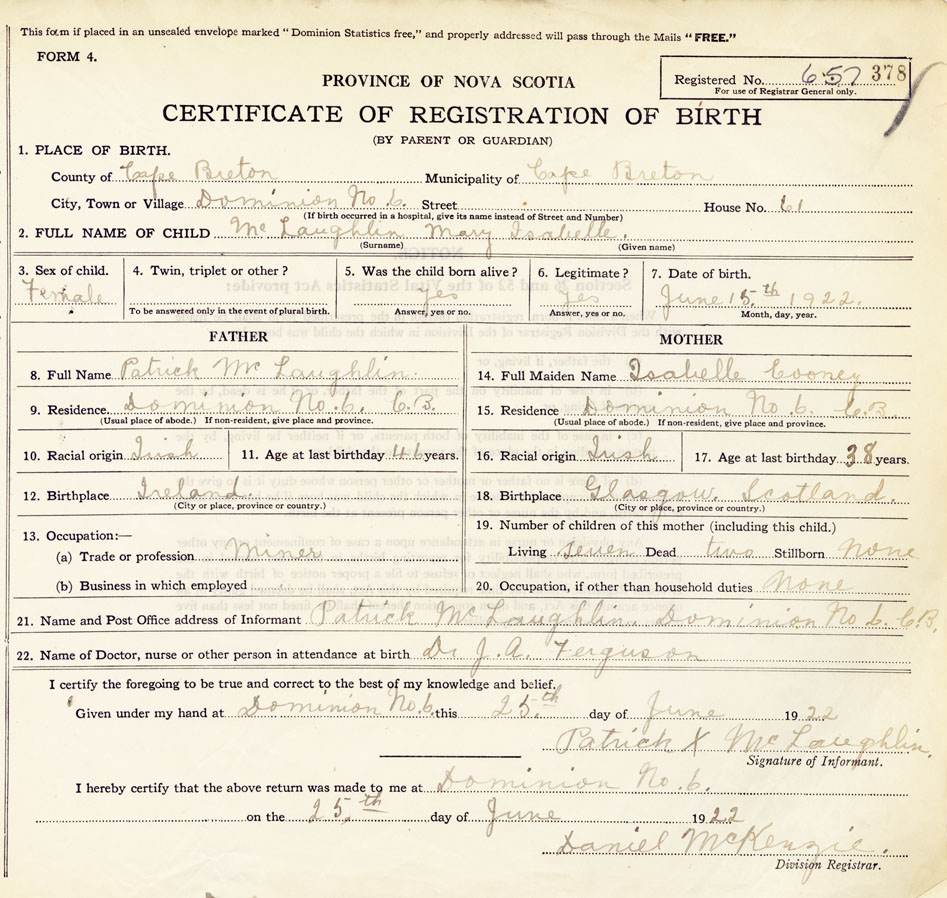 This form if placed in an unsealed envelope marked "Dominion Statistics free," and properly addressed will pass through the Mails "FREE."
FORM 4.
PROVINCE OF NOVA SCOTIA
Registered No. 657 378
For use of Registrar General only.
CERTIFICATE OF REGISTRATION OF BIRTH
(BY PARENT OR GUARDIAN)
1. PLACE OF BIRTH.
County of Cape Breton Municipality of Cape Breton
City, Town or Village Dominion No 6. Street House No. 61
(If birth occurred in a hospital, give its name instead of Street and Number)
2. FULL NAME OF CHILD Mc Laughlin Mary Isabelle.
(Surname) (Given name)
3. Sex of child. 4. Twin, triplet or other? 5. Was the child born alive? 6. Legitimate? 7. Date of birth.
Female yes yes June 15th 1922.
To be answered only in the event of plural birth. Answer, yes or no. Answer, yes or no. Month, day, year.
FATHER MOTHER
8. Full Name Patrick Mc Laughlin. 14. Full Maiden Name Isabelle Cooney
9. Residence Dominion No. 6. C.B. 15. Residence Dominion No. 6. C.B
(Usual place of abode.) If non-resident, give place and province. (Usual place of abode.) If non-resident, give place and province.
10. Racial origin Irish 11. Age at last birthday 46 years. 16. Racial origin Irish 17. Age at last birthday 38 years.
12. Birthplace Ireland. 18. Birthplace Glasgow. Scotland.
(City or place, province or country.) (City or place, province or country.)
13. Occupation:— 19. Number of children of this mother (including this child.)
(a) Trade or profession Miner Living Seven Dead two Stillborn None
(b) Business in which employed 20. Occupation, if other than household duties None
21. Name and Post Office address of Informant Patrick McLaughlin. Dominion No 6. C.B.
22. Name of Doctor, nurse or other person in attendance at birth Dr J. A. Ferguson
I certify the foregoing to be true and correct to the best of my knowledge and belief.
Given under my hand at Dominion No. 6. this 25.th day of June 1922
Patrick X McLaughlin.
Signature of Informant.
I hereby certify that the above return was made to me at Dominion No. 6.
on the 25.th day of June 1922
Daniel McKenzie.
Division Registrar.